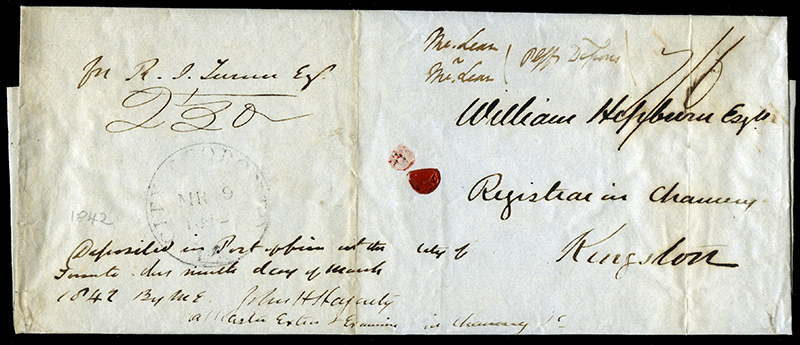 for R. J. Turner Esq.
2/30
McLean
vs
McLean
7/6
William Hepburn Esqre
Registrar in Chancery
Kingston
CITY OF TORONTO
MR 9
1842
1842
Deposited in Post office at the City of
Toronto this ninth day of March
1842 By Me John H Hagarty
a Master Extra & Examiner in Chancery